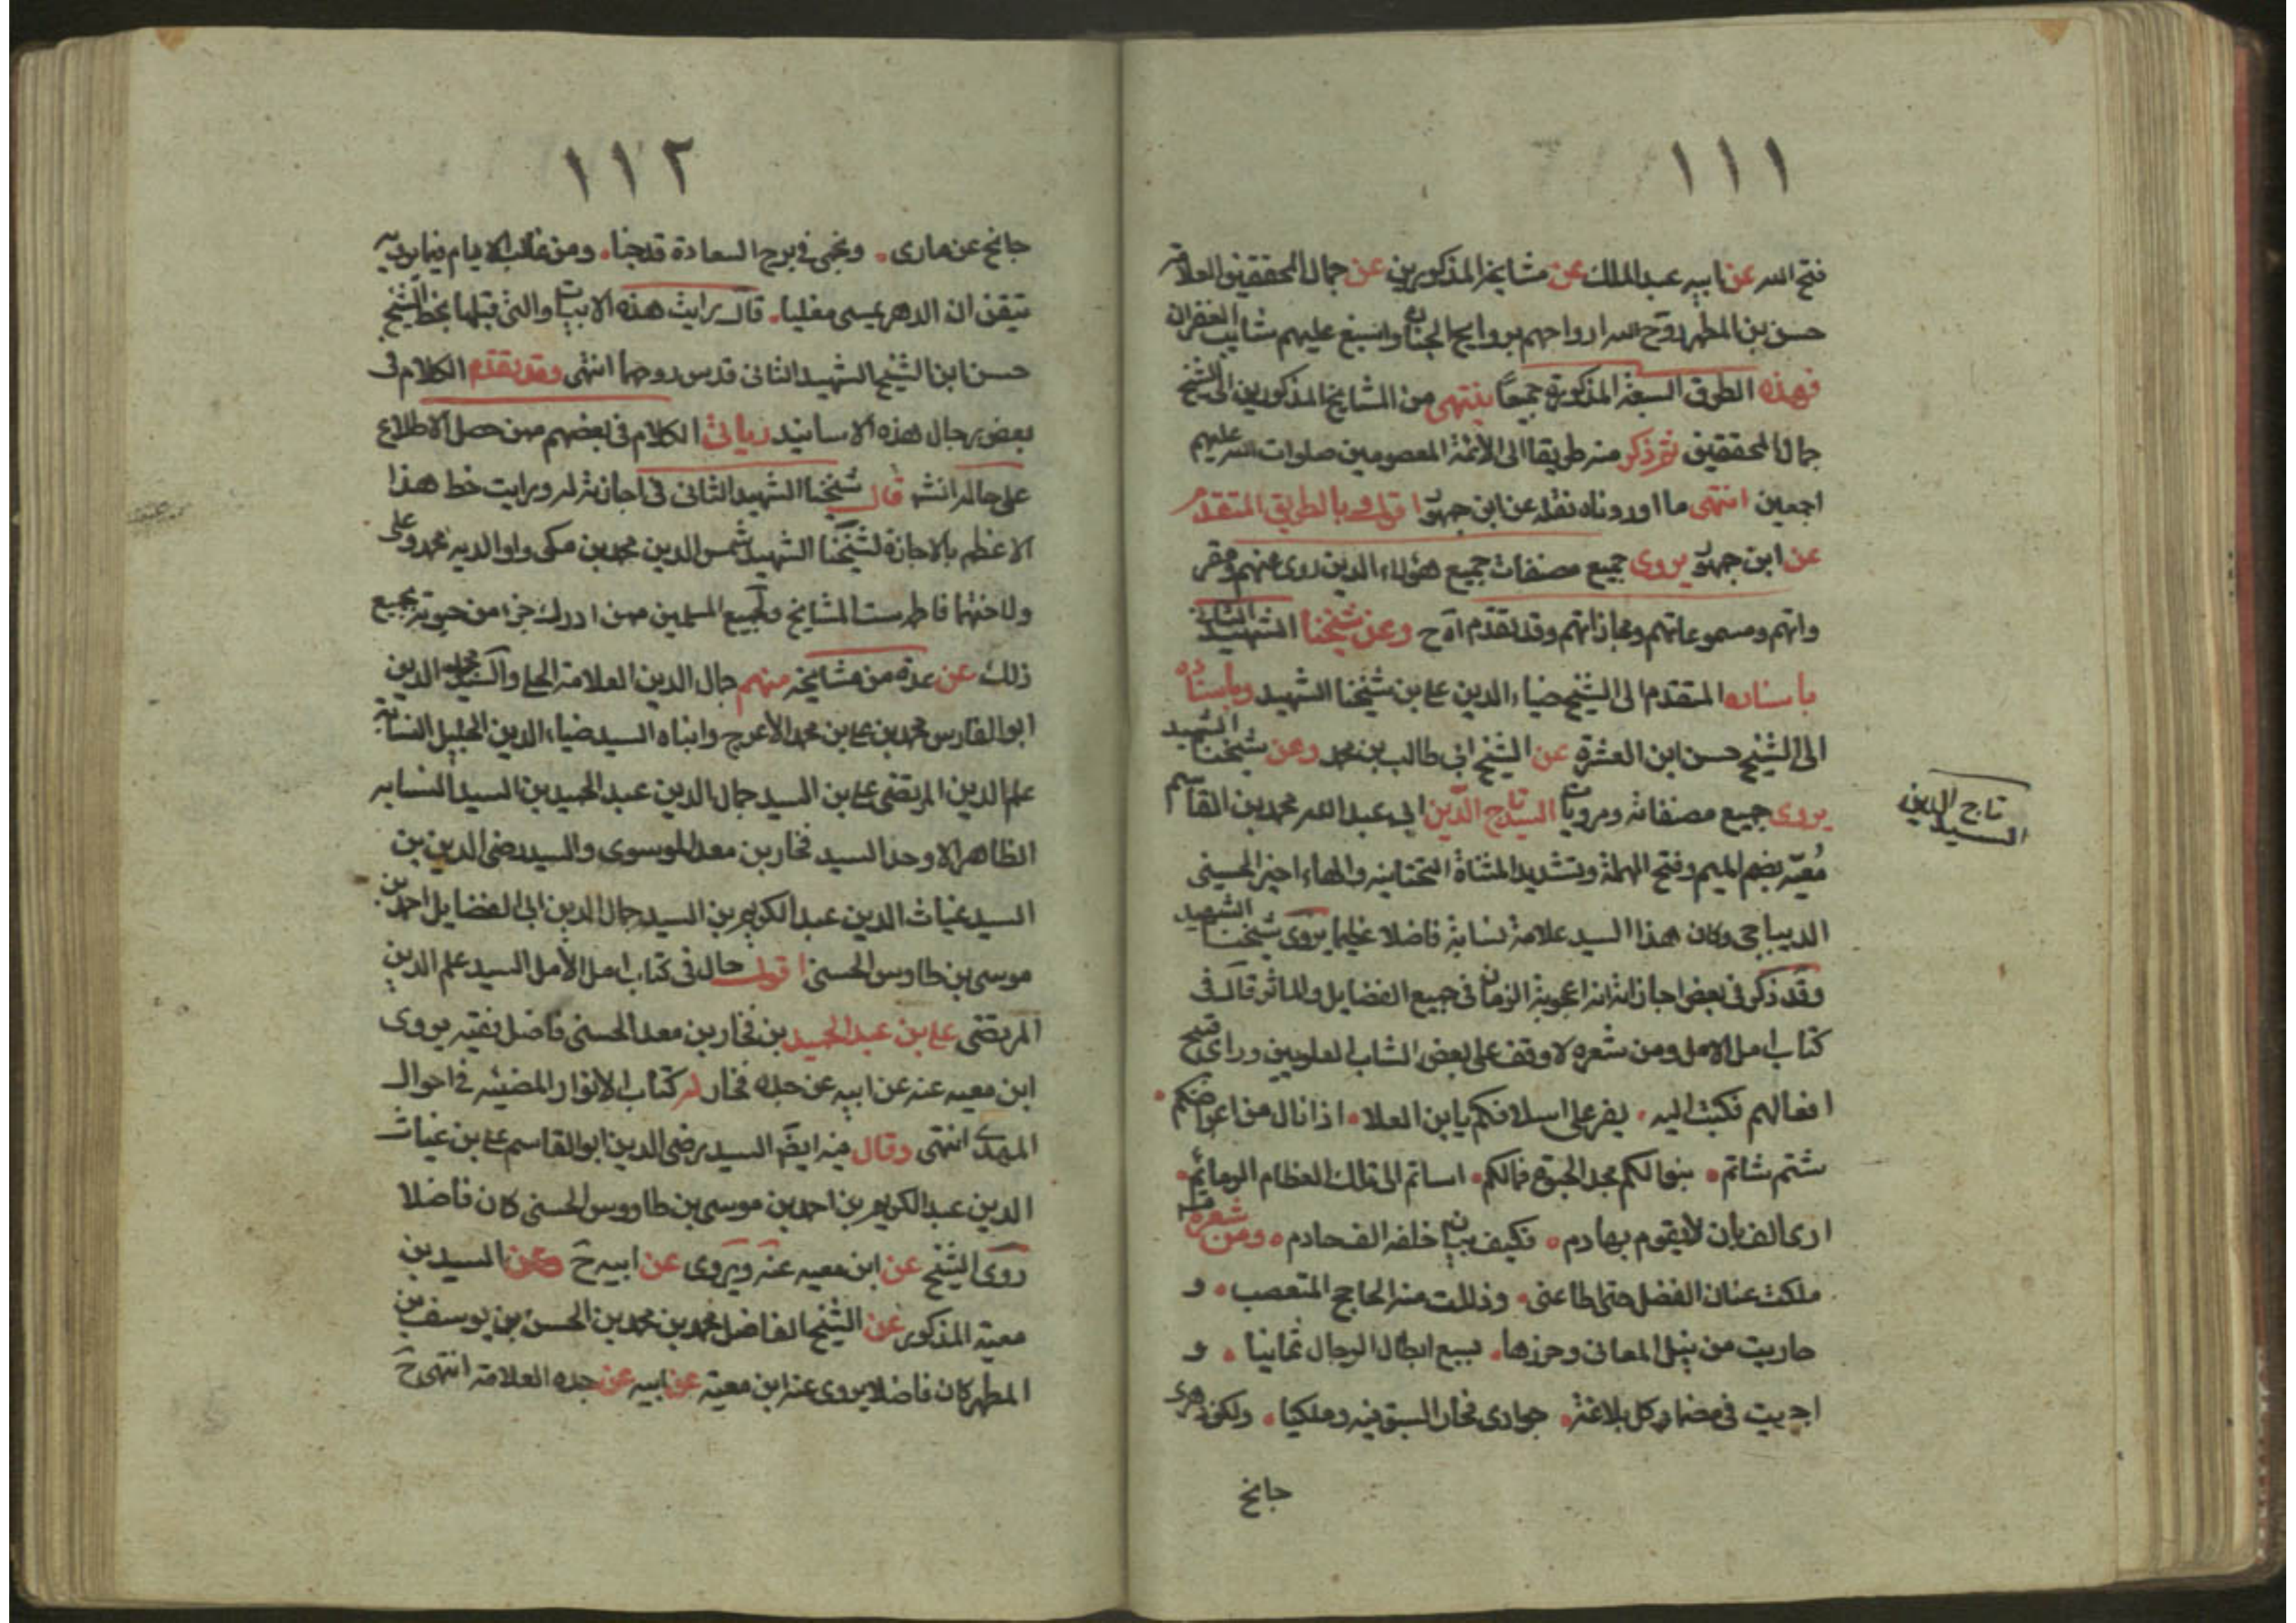 ١١١
فتح الله عن ابيه عبد الملك عن مشايخه المذكورين عن جمال المحققين العلامة
حسن بن المطهر روح الله ارواحهم بروايح الجنان واسبغ عليهم شآبيب الغفران
فهذه الطرق السبعة المذكورة جميعًا ينتهى من المشايخ المذكورين الى الشيخ
جمال المحققين ثم ذكر منه طريقا الى الائمة المعصومين صلوات الله عليهم
اجمعين انتهى ما اوردناه نقله عن ابن جمهور اقول وبالطريق المتقدم
عن ابن جمهور يروى جميع مصنفات جميع هؤلاء الذين روى عنهم ومقر
واتهم ومسموعاتهم ومجازاتهم وقد تقدم آه ح وعن شيخنا الشهيد الثانى
باسناده المتقدم الى الشيخ ضياء الدين على بن شيخنا الشهيد وباسناده
الى الشيخ حسن ابن العشرة عن الشيخ ابى طالب بن محمد وعن شيخنا الشهيد
يروى جميع مصنفاته ومرويات السيد تاج الدين ابى عبد الله محمد بن القاسم
تاج الدين
السيد
مُعيّه بضم الميم وفتح المهملة وتشديد المثناة التحتانيه والهاء اخيرا الحسينى
الديباجى وكان هذا السيد علامة نسابة فاضلا عظيما يروى شيخنا الشهيد
وقد ذكر فى بعض اجازاته انه اعجوبة الزمان فى جميع الفضايل والمآثر قال فى
كتاب امل الامل ومن شعره لا وقف على بعض الشاب العلويين وراى قبيح
افعالهم فكتب اليه يفر على اسلافكم يابن العلا اذا نال من اعراضكم
شتم شاتم بنوا لكم مجد الحيوة فمالكم اساتم الى تلك العظام الرمائم
ارى الف بان لا يقوم بهادم فكيف ببان خلفه الف هادم ومن شعره
ملكت عنان الفضل حتى اطاعنى وذللت منه الجامح المتعصب و
حاربت من نيل المعانى وحرزها بسبع ابطال الرجال ثمانيا و
اجريت فى مضمار كل بلاغة جوادى فحاز السبق فيه وملكيا ولكن دهرى
جانح
١١٢
جانح عن مارى ونجمى فى برج السعادة قد خبا ومن غالب الايام فيما يريبه
تيقن ان الدهر يمسى مغلبا قال رايت هذه الابيات والتى قبلها بخط الشيخ
حسن ابن الشيخ الشهيد الثانى قدس روحهما انتهى وقد تقدم الكلام فى
بعض رجال هذه الاسانيد وياتى الكلام فى بعضهم ممن حصل الاطلاع
على حاله انشه قال شيخنا الشهيد الثانى فى اجازته له ورايت خط هذا
الاعظم بالاجازة لشيخنا الشهيد شمس الدين محمد بن مكى ولوالديه محمد وعلى
ولاختهما فاطمه ست المشايخ ولجميع المسلمين ممن ادرك جزءا من حيوته بجميع
ذلك عن عدة من مشايخه منهم جمال الدين العلامة الحلى والسيد مجد الدين
ابو الفارس محمد بن على بن محمد الاعرج وابناه السيد ضياء الدين الجليل النسابه
علم الدين المرتضى على بن السيد جمال الدين عبد الحميد بن السيد النسابه
الطاهر الاوحد السيد فخار بن معد الموسوى والسيد رضى الدين بن
السيد غياث الدين عبد الكريم بن السيد جمال الدين ابى الفضايل احمد بن
موسى بن طاوس الحسنى اقول قال فى كتاب امل الأمل السيد علم الدين
المرتضى على بن عبد الحميد بن فخار بن معد الحسنى فاضل فقيه يروى
ابن معيه عنه عن ابيه عن جده فخار له كتاب الانوار المضيئه فى احوال
المهدى انتهى وقال فيه ايضًا السيد رضى الدين ابو القاسم على بن غياث
الدين عبد الكريم بن احمد بن موسى بن طاووس الحسنى كان فاضلا
روى الشيخ عن ابن معيه عنه ويروى عن ابيه ح وعن السيد بن
معية المذكور عن الشيخ الفاضل محمد بن محمد بن الحسن بن يوسف بن
المطهر كان فاضلا يروى عنه ابن معية عن ابيه عن جده العلامة انتهى ح